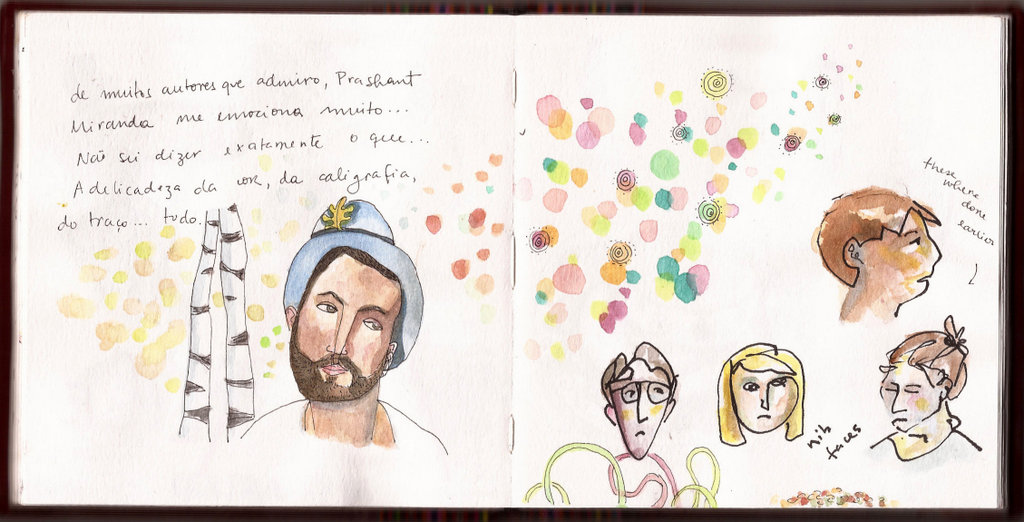 de muitos autores que admiro, Prashant
Miranda me emociona muito...
Não sei dizer exatamente o que...
A delicadeza da cor, da caligrafia,
do traço... tudo.
these
where
done
earlier
nib
faces